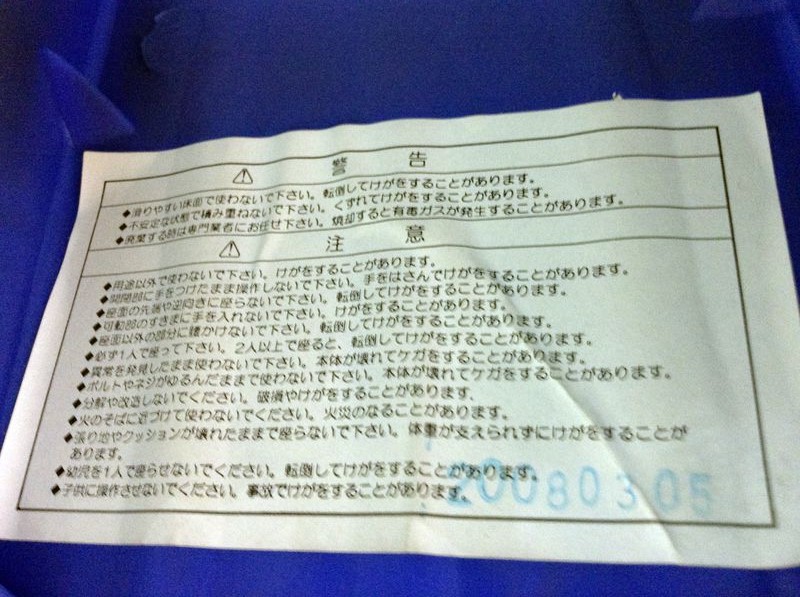 ⚠ 警告
◆滑りやすい床面で使わないで下さい。転倒してけがをすることがあります。
◆不安定な状態で積み重ねないで下さい。くずれてけがをすることがあります。
◆廃棄する時は専門業者にお任せ下さい。焼却すると有毒ガスが発生することがあります。
⚠ 注意
◆用途以外で使わないで下さい。けがをすることがあります。
◆開閉部に手をつけたまま操作しないで下さい。手をはさんでけがをすることがあります。
◆座面の先端や逆向きに座らないで下さい。転倒してけがをすることがあります。
◆可動部のすきまに手を入れないで下さい。けがをすることがあります。
◆座面以外の部分に腰かけないで下さい。転倒してけがをすることがあります。
◆必ず1人で座って下さい。2人以上で座ると、転倒してけがをすることがあります。
◆異常を発見したまま使わないで下さい。本体が壊れてケガをすることがあります。
◆ボルトやネジがゆるんだままで使わないで下さい。本体が壊れてケガをすることがあります。
◆分解や改造しないでください。破損やけがをすることがあります。
◆火のそばに近づけて使わないでください。火災のなることがあります。
◆張り地やクッションが壊れたままで座らないで下さい。体重が支えられずにけがをすることが
あります。
◆幼児を1人で座らせないでください。転倒してけがをすることがあります。
◆子供に操作させないでください。事故でけがをすることがあります。
20080305